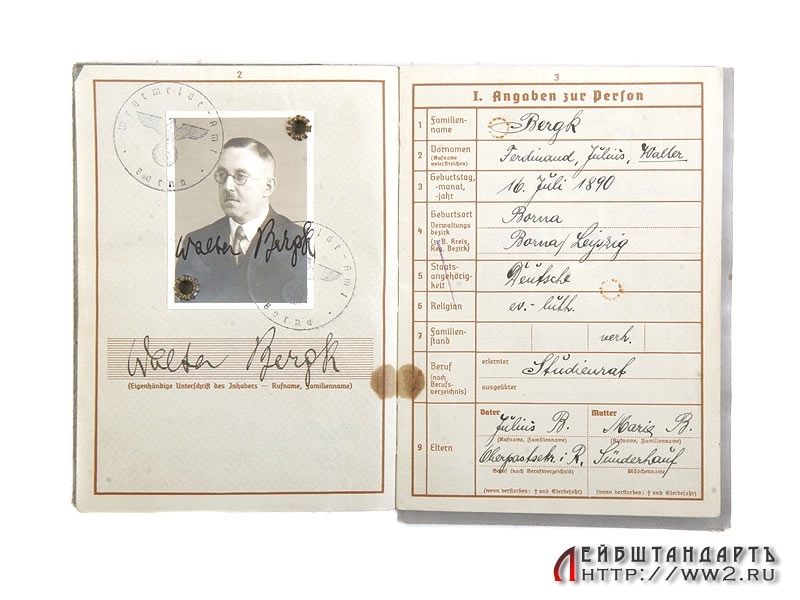 2
Wehrmelde-Amt
Borna
Walter Bergk
Wehrmelde-Amt
Borna
Walter Bergk
(Eigenhändige Unterschrift des Inhabers — Rufname, Familienname)
3
I. Angaben zur Person
1 Familien-
name
Bergk
2 Vornamen
(Rufname
unterstreichen)
Ferdinand, Julius, Walter
3 Geburtstag,
-monat,
-jahr
16. Juli 1890
4 Geburtsort
Verwaltungs-
bezirk
(z. B. Kreis,
Reg. Bezirk)
Borna
Borna/Leipzig
5 Staats-
angehörig-
keit
Deutsche
6 Religion
ev.-luth.
7 Familien-
stand
verh.
8 Beruf
(nach
Berufs-
verzeichnis)
erlernter
Studienrat
ausgeübter
9 Eltern
Vater
Julius B.
(Rufname, Familienname)
Oberpostsekr. i. R.
Beruf (nach Berufsverzeichnis)
(wenn verstorben: † und Sterbejahr)
Mutter
Marie B.
(Rufname, Familienname)
Sünderhauf
Mädchenname
(wenn verstorben: † und Sterbejahr)
ЛЕЙБШТАНДАРТЪ
HTTP://WW2.RU